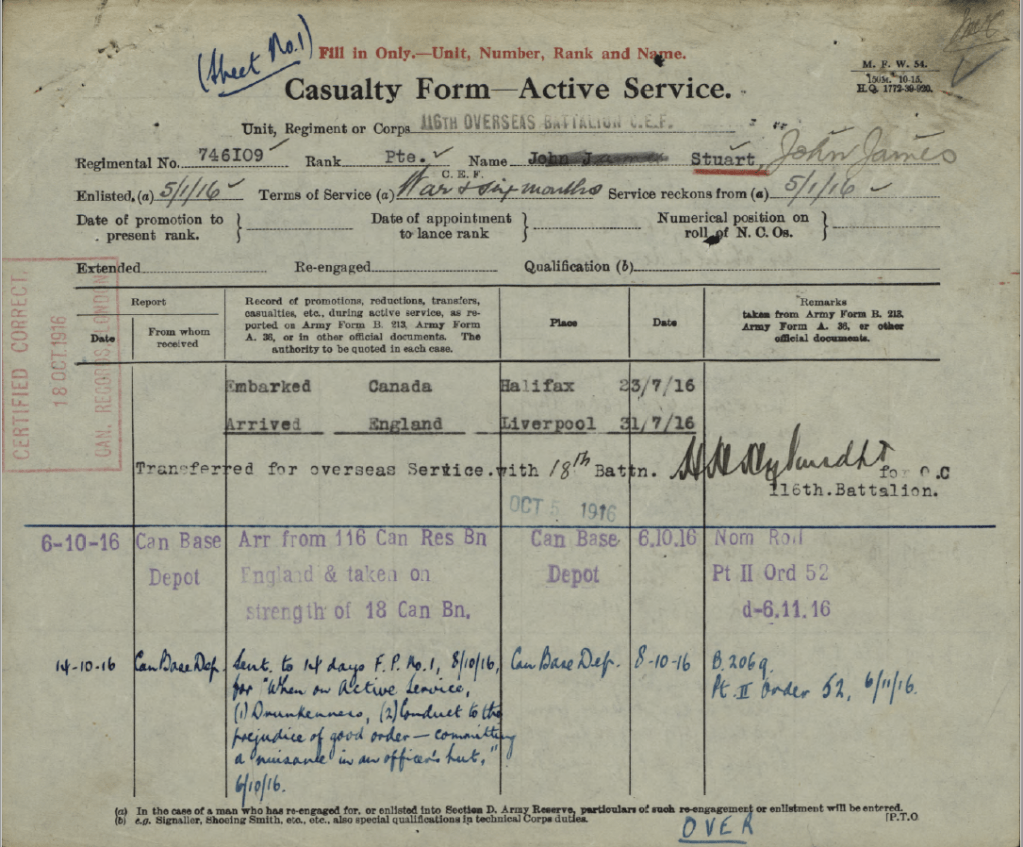 (Sheet No.1)
Fill in Only.—Unit, Number, Rank and Name.
M. F. W. 54.
H.Q. 1772-39-920.
Casualty Form—Active Service.
Unit, Regiment or Corps 116TH OVERSEAS BATTALION C.E.F.
Regimental No. 746109 Rank Pte. Name John James Stuart, John James
C.E.F.
Enlisted (a) 5/1/16 Terms of Service (a) War & six months Service reckons from (a) 5/1/16
Date of promotion to present rank. } Date of appointment to lance rank } Numerical position on roll of N. C. Os. }
Extended Re-engaged Qualification (b)
CERTIFIED CORRECT.
18 OCT. 1916
CAN. RECORDS LONDON
Report
Date
From whom received
Record of promotions, reductions, transfers, casualties, etc., during active service, as reported on Army Form B. 213, Army Form A. 36, or in other official documents. The authority to be quoted in each case.
Place
Date
Remarks
taken from Army Form B. 213, Army Form A. 36, or other official documents.
Embarked Canada Halifax 23/7/16
Arrived England Liverpool 31/7/16
Transferred for overseas Service.with 18th Battn.
for O.C
116th.Battalion.
OCT 5 1916
6-10-16 Can Base Arr from 116 Can Res Bn Can Base 6.10.16 Nom Roll
Depot England & taken on Depot Pt II Ord 52
strength of 18 Can Bn. d-6.11.16
14-10-16 Can Base Dep. Sent. to 14 days F.P. No.1, 8/10/16, Can Base Dep. 8-10-16 B.2069.
for "When on Active Service, Pt. II Order 52, 6/11/16.
(1) Drunkenness, (2) Conduct to the
prejudice of good order — committing
a nuisance in an officer's hut,"
6/10/16.
(a) In the case of a man who has re-engaged for, or enlisted into Section D. Army Reserve, particulars of such re-engagement or enlistment will be entered.
(b) e.g. Signaller, Shoeing Smith, etc., etc., also special qualifications in technical Corps duties.
[P.T.O
OVER